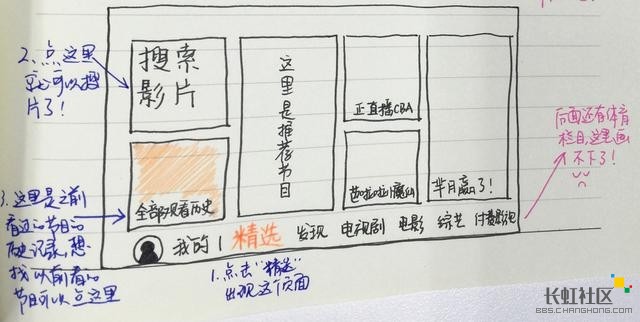 2、点这里
就可以搜
片了!
搜索
影片
这里是推荐节目
正直播CBA
芭啦啦小魔仙
芈月赢了!
全部观看历史
后面还有体育
栏目,这里画
不下了!
3、这里是之前
看过的节目的
历史记录,想
找以前看的
节目可以点这里
我的 | 精选 发现 电视剧 电影 综艺 付费影视
1、点击“精选”
出现这个页面
长虹社区
BBS.CHANGHONG.COM